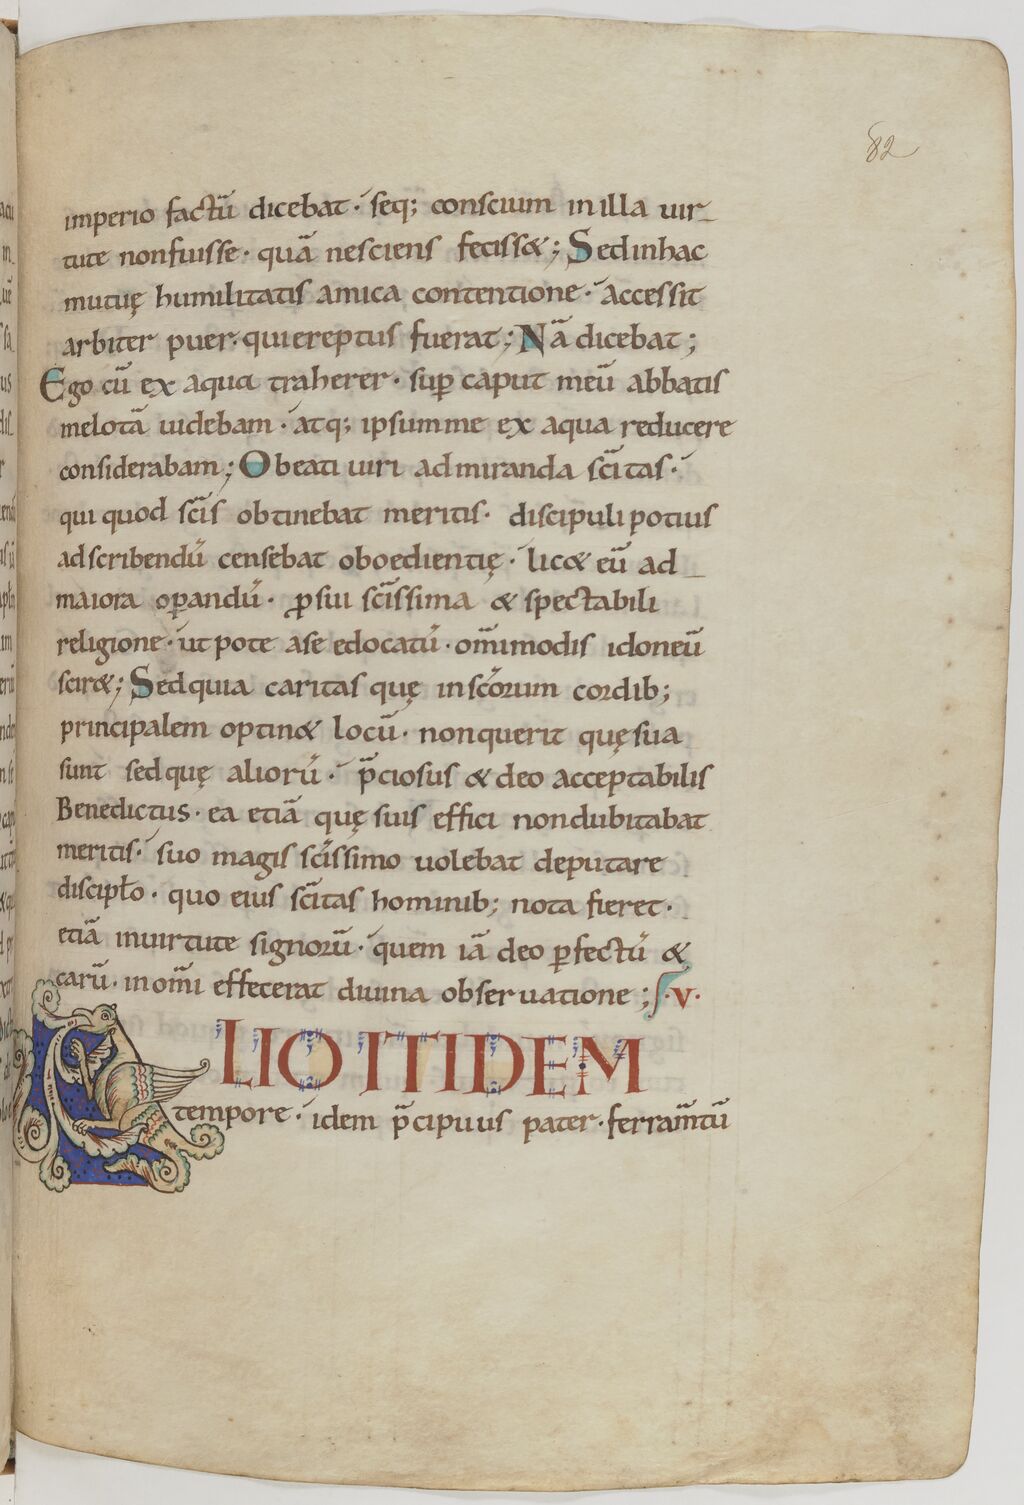 82
imperio factū dicebat · seq; conscium in illa uir
tute non fuisse · quā nesciens fecisset; Sed in hac
mutuę humilitatis amica contentione · accessit
arbiter puer · qui ereptus fuerat; Nā dicebat;
Ego cū ex aqua traherer · sup̄ caput meū abbatis
melotā uidebam · atq; ipsum me ex aqua reducere
considerabam; O beati uiri admiranda sc̄itas ·
qui quod sc̄is obtinebat meritis · discipuli potius
adscribendū censebat oboedientię · licet eū ad
maiora op̄andū · ꝓ sui sc̄issima & spectabili
religione · utpote a se edocatū · om̄imodis idoneū
sciret; Sed quia caritas quę in sc̄orum cordib;
principalem optinet locū · non querit quę sua
sunt sed quę aliorū · p̄ciosus & deo acceptabilis
Benedictus · ea etiā quę suis effici non dubitabat
meritis · suo magis sc̄issimo uolebat deputare
discipło · quo eius sc̄itas hominib; nota fieret ·
etiā in uirtute signorū · quem iā deo p̄fectū &
carū · in om̄i effecerat diuina obseruatione; ſ · v ·
ALIO ITIDEM
tempore · idem p̄cipuus pater · ferram̄tū